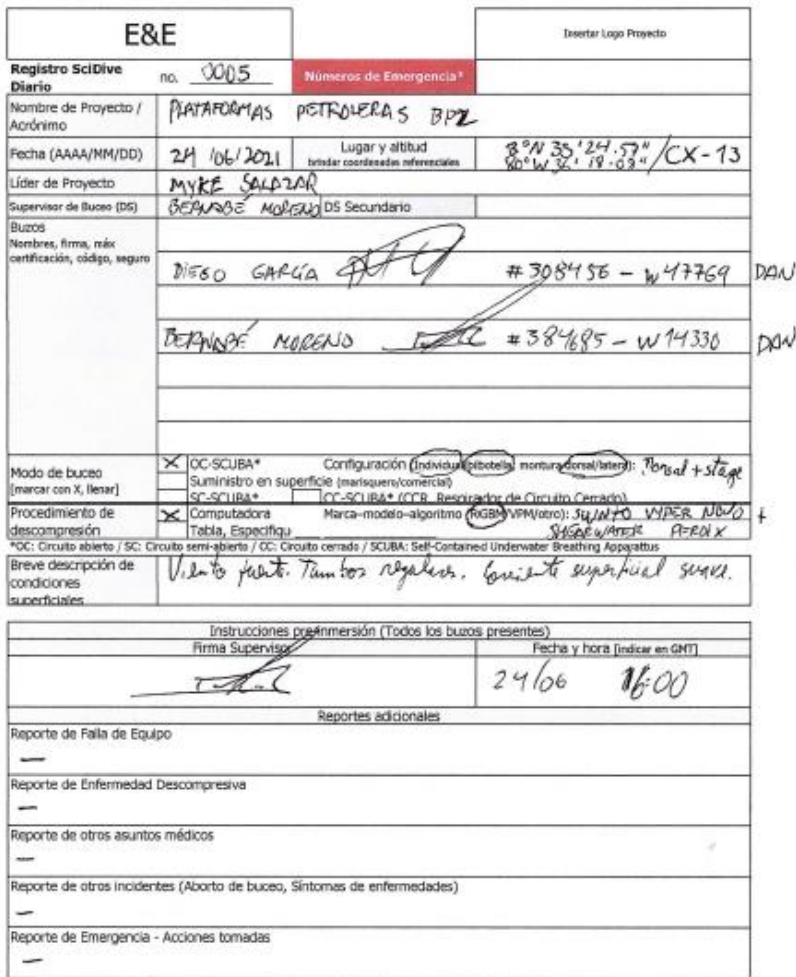 E&E
Insertar Logo Proyecto
Registro SciDive Diario no. 0005 Números de Emergencia*
Nombre de Proyecto / Acrónimo PLATAFORMAS PETROLERAS BPZ
Fecha (AAAA/MM/DD) 24/06/2021 Lugar y altitud brindar coordenadas referenciales /CX-13
Líder de Proyecto MYKE SALAZAR
Supervisor de Buceo (DS) BERNABÉ MORENO DS Secundario
Buzos
Nombres, firma, máx certificación, código, seguro
DIEGO GARCÍA #308456 - W47769 DAN
BERNABÉ MORENO #384685 - W14330 DAN
Modo de buceo [marcar con X, llenar]
X OC-SCUBA* Configuración (Individual/bibotella, montura dorsal/lateral): Dorsal + stage
Suministro en superficie (marisquero/comercial)
SC-SCUBA* CC-SCUBA* (CCR, Respirador de Circuito Cerrado)
Procedimiento de descompresión
X Computadora Marca-modelo-algoritmo (RGBM/VPM/otro): SUUNTO VYPER NOVO +
Tabla, Especifiqu SHEARWATER PERDIX
*OC: Circuito abierto / SC: Circuito semi-abierto / CC: Circuito cerrado / SCUBA: Self-Contained Underwater Breathing Apparattus
Breve descripción de condiciones superficiales
Viento fuerte. Tumbos regulares. Corriente superficial suave.
Instrucciones preinmersión (Todos los buzos presentes)
Firma Supervisor Fecha y hora [indicar en GMT]
24/06 16:00
Reportes adicionales
Reporte de Falla de Equipo
—
Reporte de Enfermedad Descompresiva
—
Reporte de otros asuntos médicos
—
Reporte de otros incidentes (Aborto de buceo, Síntomas de enfermedades)
—
Reporte de Emergencia - Acciones tomadas
—